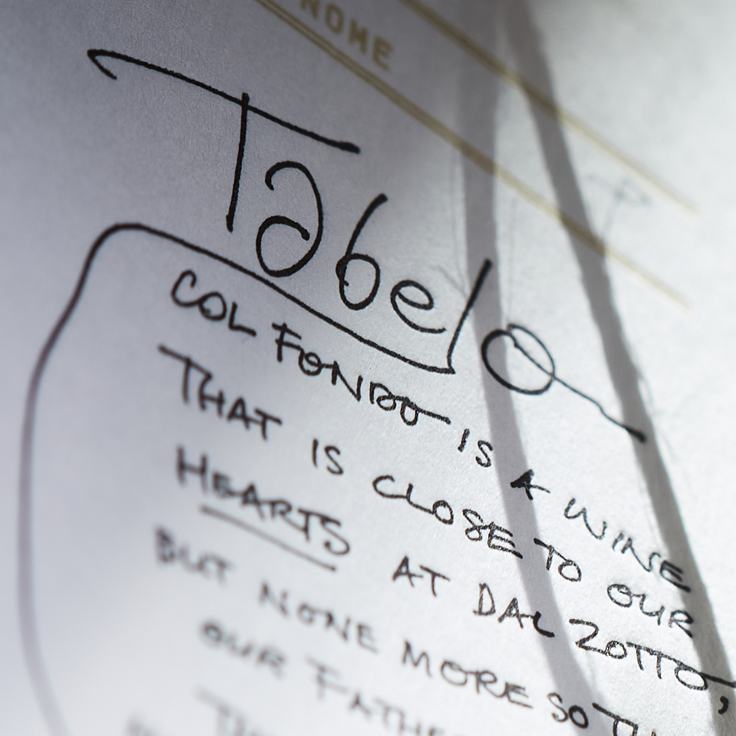 NOME
Tabelo
COL FONDO IS A WINE
THAT IS CLOSE TO OUR
HEARTS AT DAL ZOTTO,
BUT NONE MORE SO
OUR